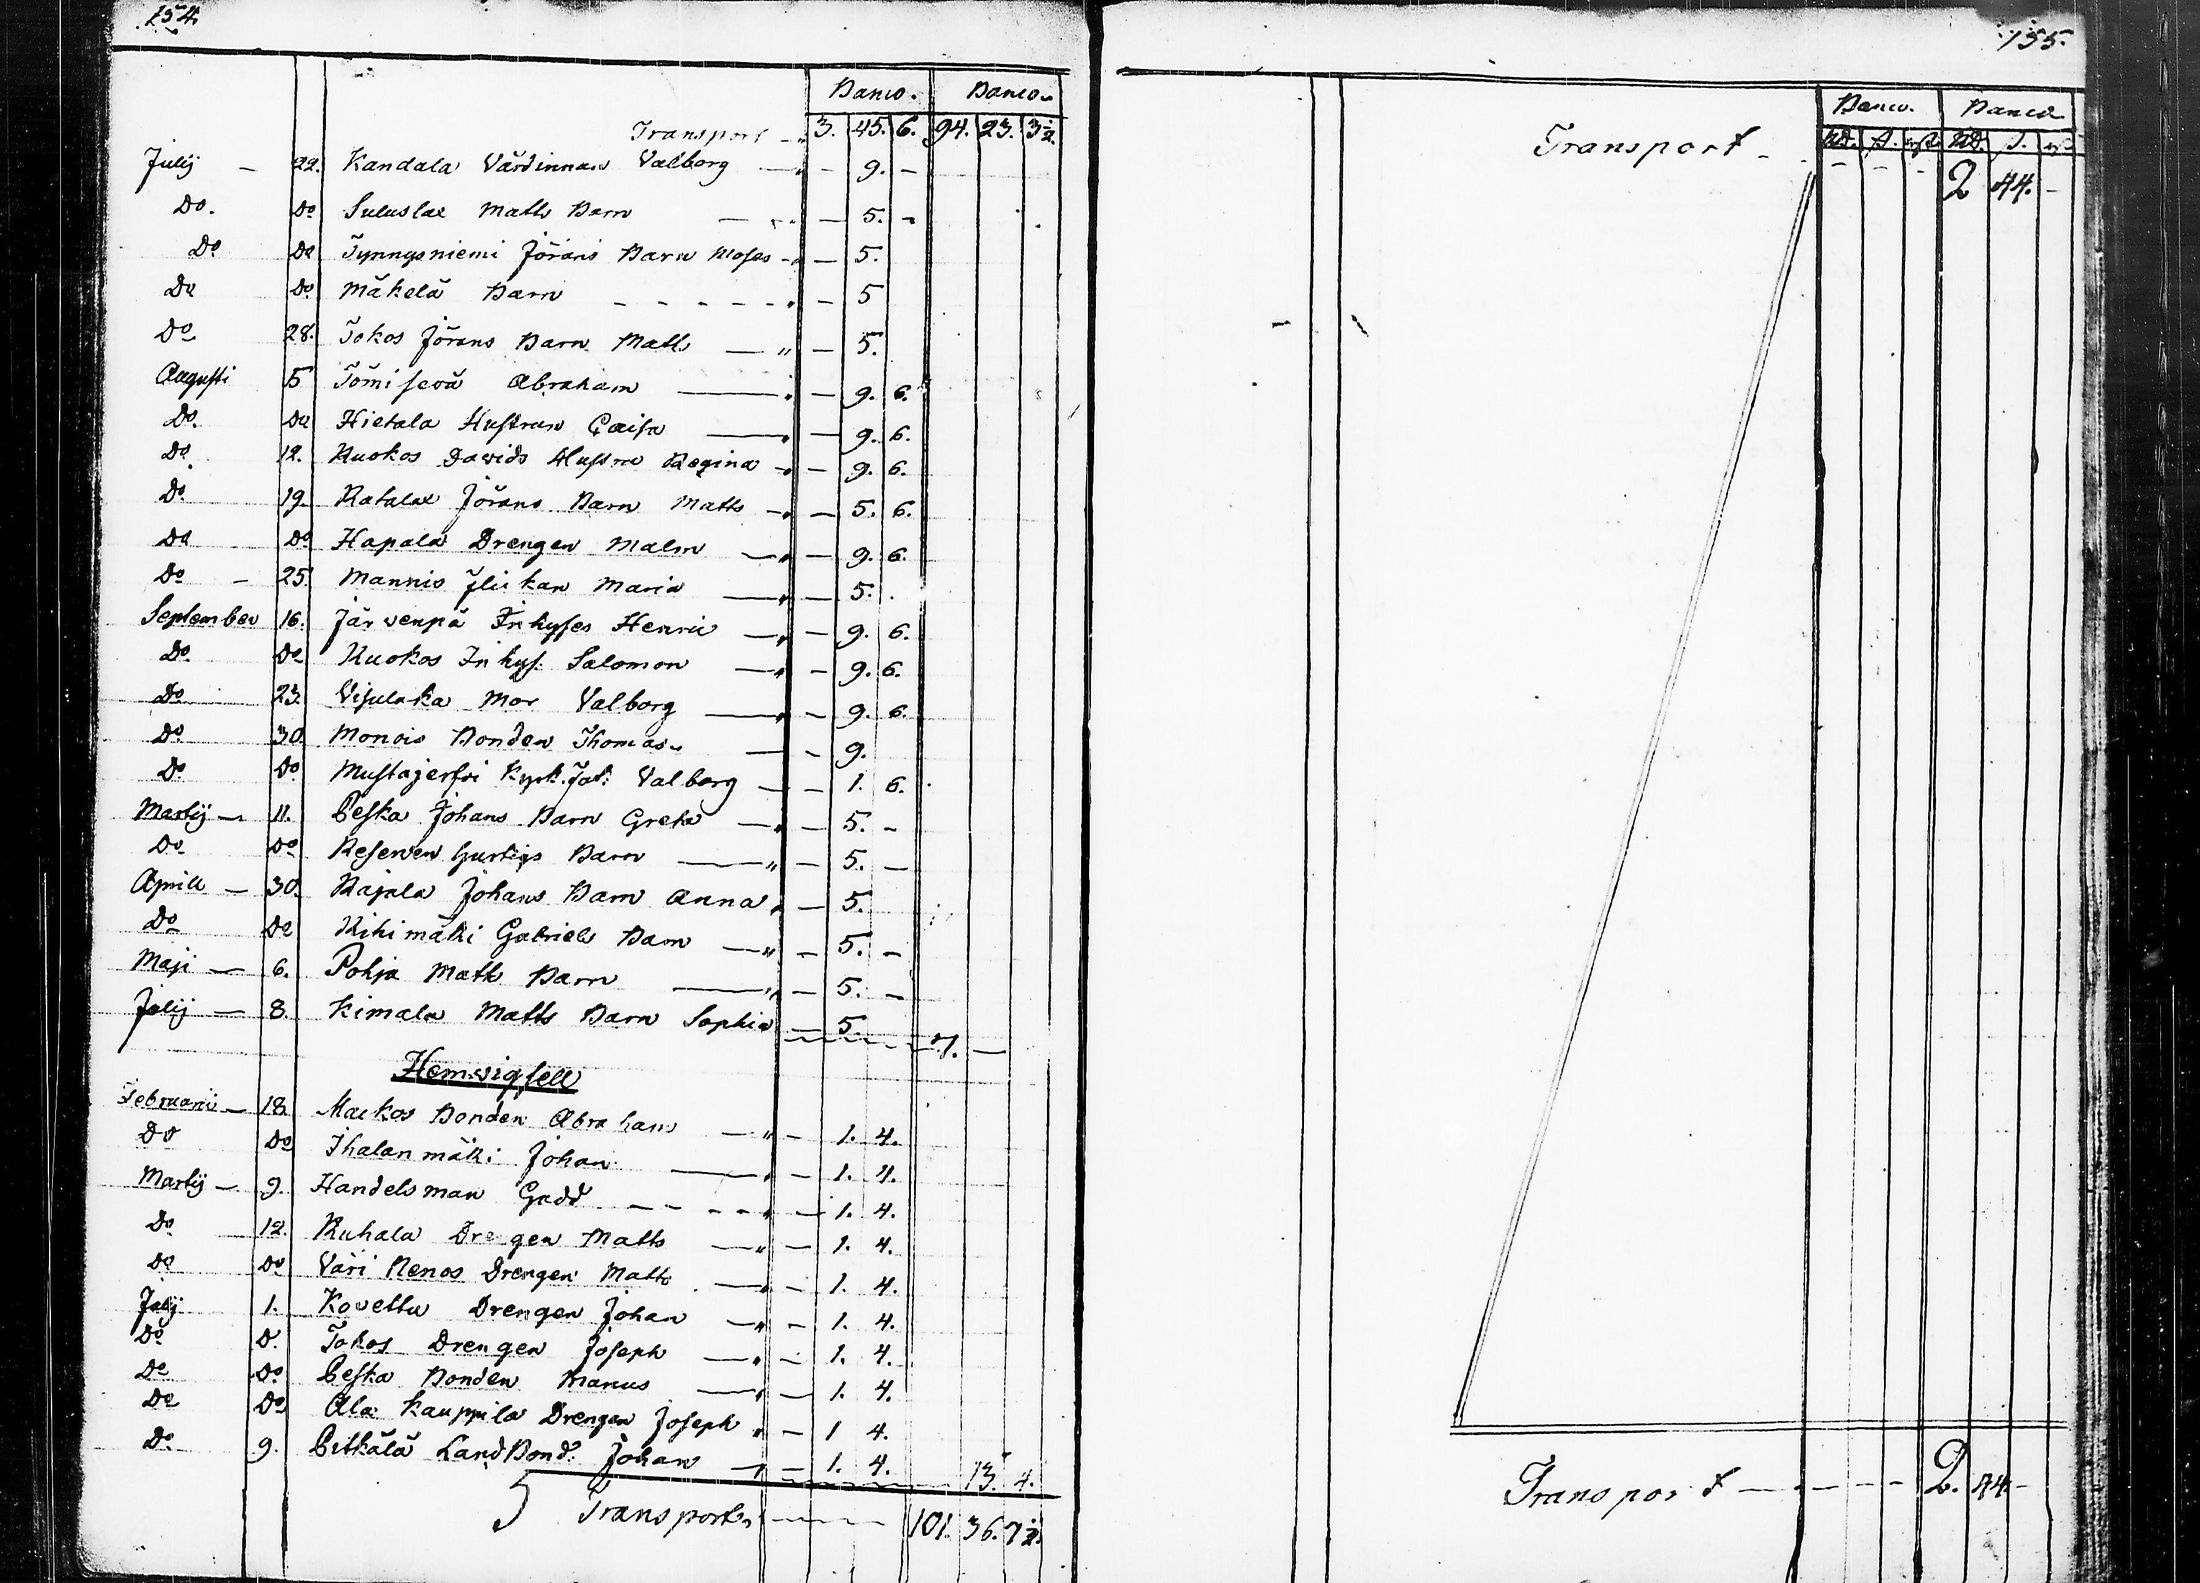 154.
Banco. Banco.
Transport 3. 45. 6. 94. 23. 3½.
Julij - 22. Kandala Värdinnan Valborg - 9. -
Do. Do Matts Barn - 5. -
Do Do Tynnysniemi Jörans Barn Moses - 5.
Do Do Mäkelä Barn - - - - - - 5
Do 28. Tokos Jörans Barn Matts — " — 5.
Augusti 5 Abraham — 9. 6.
Do. Do Hietala Hustrun Caisa — 9. 6.
Do. 12. Kuokos Davids Hustru Regina - 9. 6.
Do 19. Ratalae Jörans Barn Matts - 5. 6.
Do Do Hapala Drengen Malm — 9. 6.
Do - 25. Mannis Flickan Maria — 5.
September 16. Järvenpä Inhyses Henric — 9. 6.
Do. Do Kuokos Inhys. Salomon — 9. 6.
Do 23. Visulaka Mor Valborg — 9. 6.
Do 30. Monois Bonden Thomas — 9.
Do Do Mustajerfvi Valborg — 1. 6.
Martij — 11. Peska Johans Barn Greta — 5. -
Do Do Reserven Hurtigs Barn — " — 5. —
Aprill — 30. Rajala Johans Barn Anna — 5.
Do Do Rihimäki Gabriels Barn — " - 5. -
Maji — 6. Pohja Matts Barn — " — 5. -
Julij — 8. Kimala Matts Barn Sophia — 5. 7. —
Hemvigsell
Februarii — 18. Markos Bonden Abraham — " - 1. 4.
Do Do Ihalanmäki Johan — 1. 4.
Martij — 9. Handelsman Gadd — - - - 1. 4.
Do 12. Ruhala Drengen Matts — " — 1. 4.
Do Do Väri Nenos Drengen Matts — 1. 4.
Julij 1. Kovettu Drengen Johan — " - 1. 4.
Do D. Tokos Drengen Joseph — 1. 4.
Do Do Peska Bonden Manus — 1. 4.
Do Do Ala Kauppila Drengen Joseph - 1 4.
Do 9. Pitkälä LandBond. Johan — 1. 4. 13. 4.
Transport 101. 36. 7½.
155.
Banco. Banco
Transport Rd. s. rst. Rd. s.
2 44. -
Transport — - - - 2. 44 -